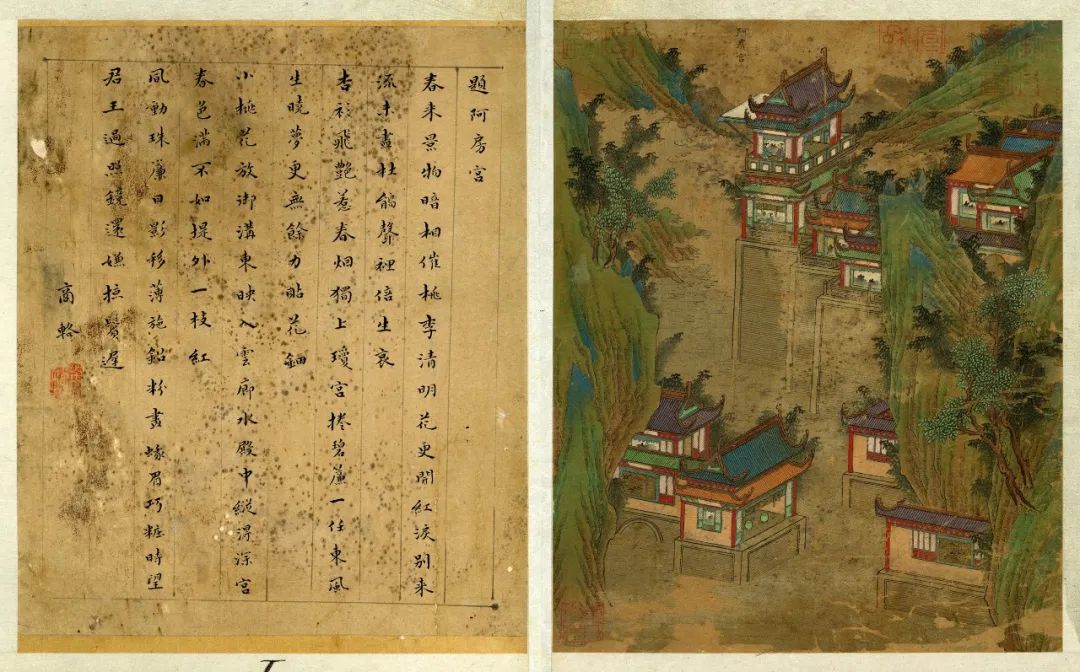 題阿房宮
春来景物暗相催桃李清明花更開紅淚别来
流未盡杜鵑聲裡倍生哀
杏衫飛艷惹春烟獨上瓊宮捲碧簾一任東風
生曉夢更無餘力貼花鈿
小桃花放御溝東映入雲廊水殿中縱得深宮
春色滿不如提外一枝紅
風動珠簾日影移薄施鉛粉畫蛾眉巧粧時望
君王過照鏡還嫌掠鬢遲
商輅
阿房宮